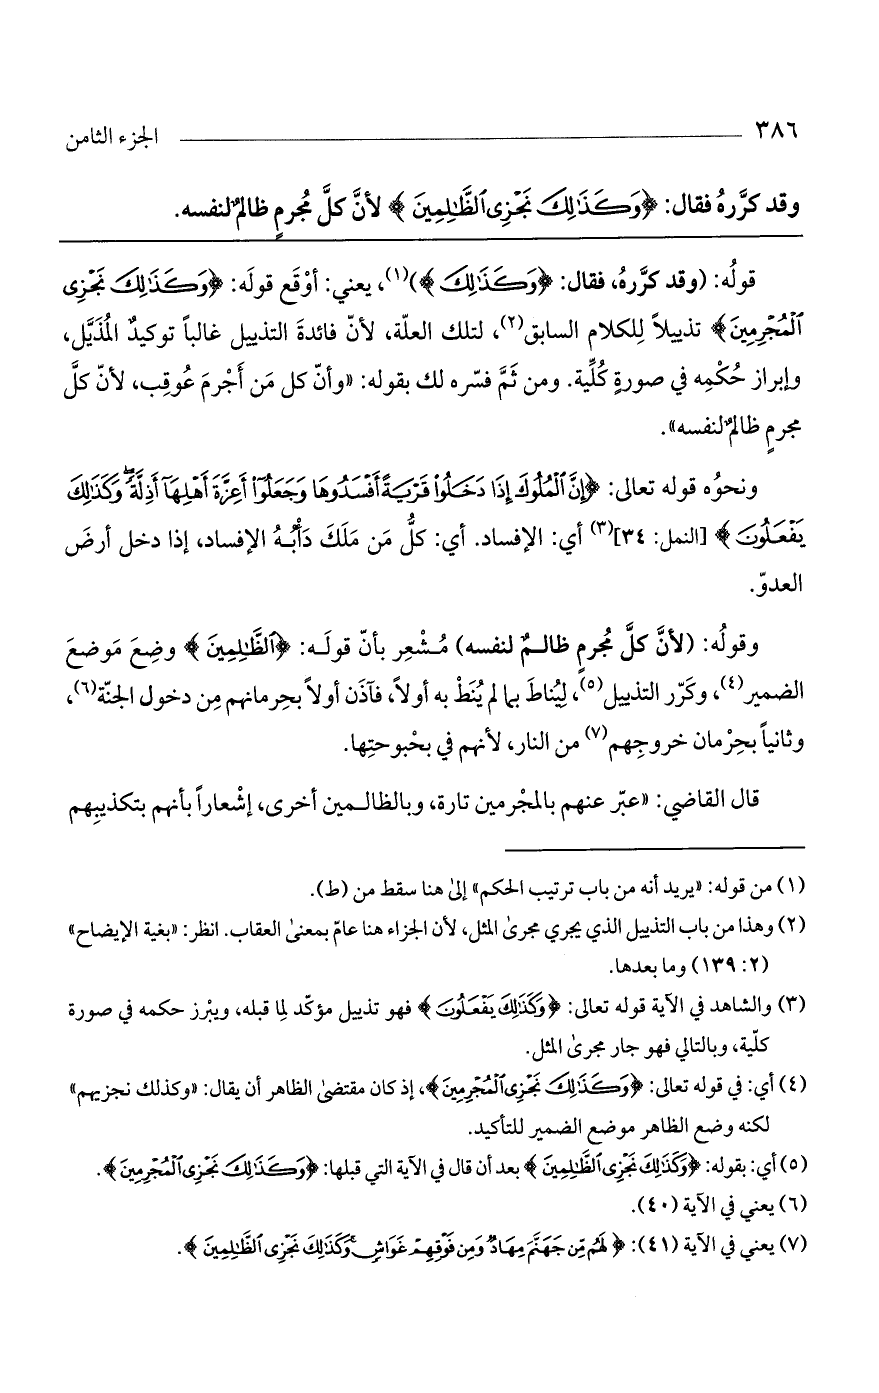 ٣٨٦ الجزء الثامن
وقد كرَّرهُ فقال: ﴿وَكَذَٰلِكَ نَجْزِى ٱلظَّٰلِمِينَ﴾ لأنَّ كلَّ مُجرمٍ ظالمٌ لنفسه.
قولُه: (وقد كرَّرهُ، فقال: ﴿وَكَذَٰلِكَ﴾)(١)، يعني: أوْقَع قولَه: ﴿وَكَذَٰلِكَ نَجْزِى
ٱلْمُجْرِمِينَ﴾ تذييلاً لِلكلام السابق(٢)، لتلك العلّة، لأنّ فائدةَ التذييل غالباً توكيدٌ المُذَيَّل،
وإبراز حُكْمِه في صورةٍ كُلِّية. ومن ثَمَّ فسّره لك بقوله: «وأنّ كل مَن أَجْرمَ عُوقِب، لأنّ كلَّ
مجرمٍ ظالمٌ لنفسه».
ونحوُه قوله تعالى: ﴿إِنَّ ٱلْمُلُوكَ إِذَا دَخَلُوا۟ قَرْيَةً أَفْسَدُوهَا وَجَعَلُوٓا۟ أَعِزَّةَ أَهْلِهَآ أَذِلَّةً ۖ وَكَذَٰلِكَ
يَفْعَلُونَ﴾ [النمل: ٣٤](٣) أي: الإفساد. أي: كلُّ مَن مَلَكَ دَأْبُهُ الإفساد، إذا دخل أرضَ
العدوّ.
وقولُه: (لأنَّ كلَّ مُجرمٍ ظالمٌ لنفسه) مُشْعِر بأنّ قولَه: ﴿ٱلظَّٰلِمِينَ﴾ وضِعَ مَوضعَ
الضمير(٤)، وكَرّر التذييل(٥)، لِيُناطَ بما لم يُنَطْ به أولاً، فآذَن أولاً بحِرمانهم مِن دخول الجنّة(٦)،
وثانياً بحِرْمان خروجِهم(٧) من النار، لأنهم في بحْبوحتِها.
قال القاضي: «عبّر عنهم بالمجْرمين تارة، وبالظالمين أخرى، إشْعاراً بأنهم بتكذيبِهم
(١) من قوله: «يريد أنه من باب ترتيب الحكم» إلىٰ هنا سقط من (ط).
(٢) وهذا من باب التذييل الذي يجري مجرىٰ المثل، لأن الجزاء هنا عامّ بمعنىٰ العقاب. انظر: «بغية الإيضاح»
(٢: ١٣٩) وما بعدها.
(٣) والشاهد في الآية قوله تعالى: ﴿وَكَذَٰلِكَ يَفْعَلُونَ﴾ فهو تذييل مؤكّد لِما قبله، ويبْرز حكمه في صورة
كلّية، وبالتالي فهو جار مجرىٰ المثل.
(٤) أي: في قوله تعالى: ﴿وَكَذَٰلِكَ نَجْزِى ٱلْمُجْرِمِينَ﴾، إذ كان مقتضىٰ الظاهر أن يقال: «وكذلك نجزيهم»
لكنه وضع الظاهر موضع الضمير للتأكيد.
(٥) أي: بقوله: ﴿وَكَذَٰلِكَ نَجْزِى ٱلظَّٰلِمِينَ﴾ بعد أن قال في الآية التي قبلها: ﴿وَكَذَٰلِكَ نَجْزِى ٱلْمُجْرِمِينَ﴾.
(٦) يعني في الآية (٤٠).
(٧) يعني في الآية (٤١): ﴿لَهُم مِّن جَهَنَّمَ مِهَادٌ وَمِن فَوْقِهِمْ غَوَاشٍ ۚ وَكَذَٰلِكَ نَجْزِى ٱلظَّٰلِمِينَ﴾.